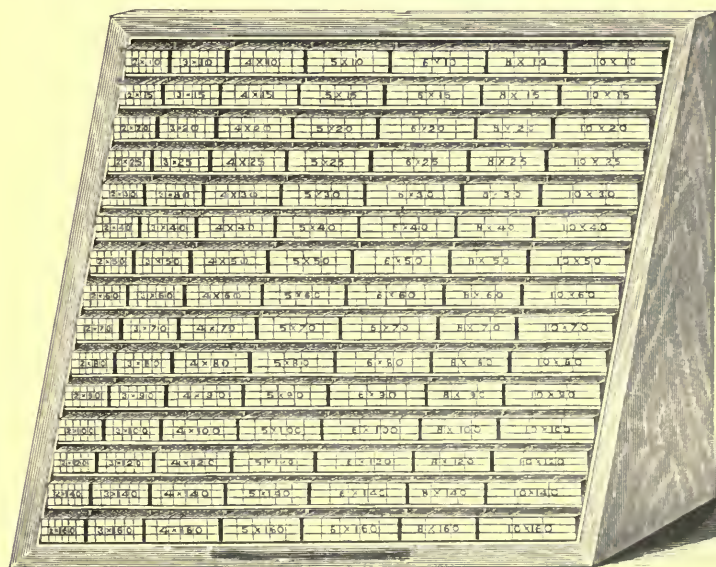 2×10 3×10 4×10 5×10 6×10 8×10 10×10
2×15 3×15 4×15 5×15 6×15 8×15 10×15
2×20 3×20 4×20 5×20 6×20 8×20 10×20
2×25 3×25 4×25 5×25 6×25 8×25 10×25
2×30 3×30 4×30 5×30 6×30 8×30 10×30
2×40 3×40 4×40 5×40 6×40 8×40 10×40
2×50 3×50 4×50 5×50 6×50 8×50 10×50
2×60 3×60 4×60 5×60 6×60 8×60 10×60
2×70 3×70 4×70 5×70 6×70 8×70 10×70
2×80 3×80 4×80 5×80 6×80 8×80 10×80
2×90 3×90 4×90 5×90 6×90 8×90 10×90
2×100 3×100 4×100 5×100 6×100 8×100 10×100
2×120 3×120 4×120 5×120 6×120 8×120 10×120
2×140 3×140 4×140 5×140 6×140 8×140 10×140
2×160 3×160 4×160 5×160 6×160 8×160 10×160